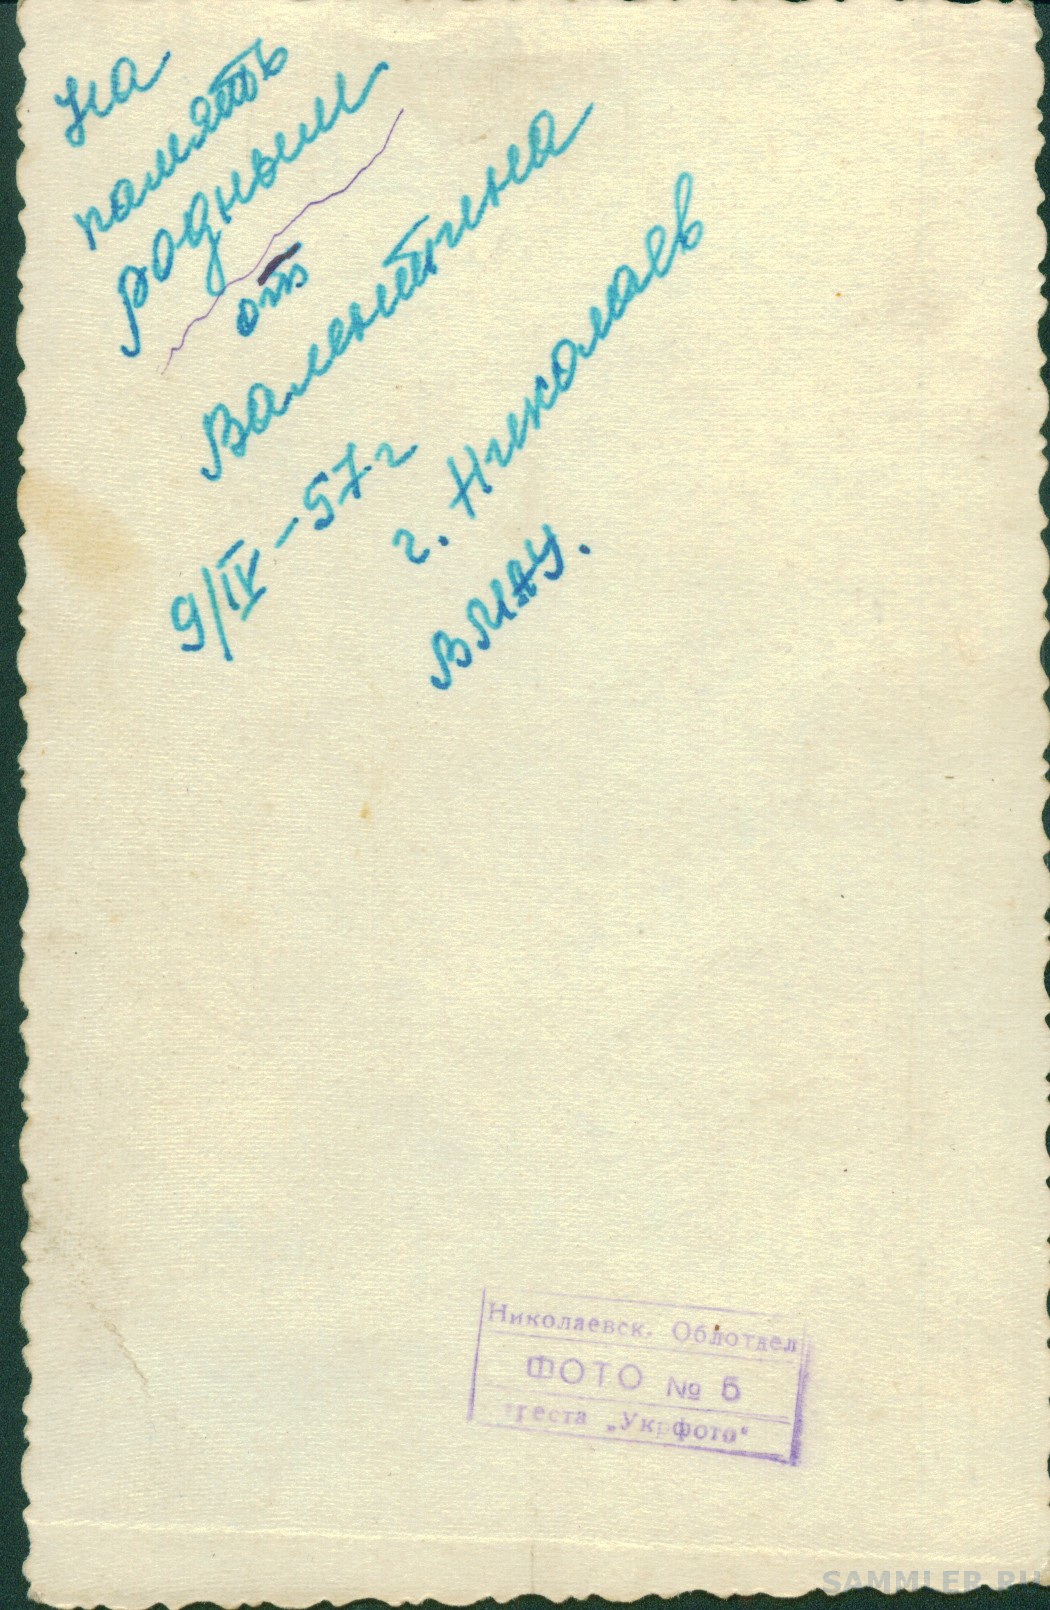 На
память
родным
от
Валентина
9/IV-57г
г. Николаев
ВМАУ.
Николаевск. Облотдел
ФОТО № 5
треста „Укрфото"
SAMMLER.RU